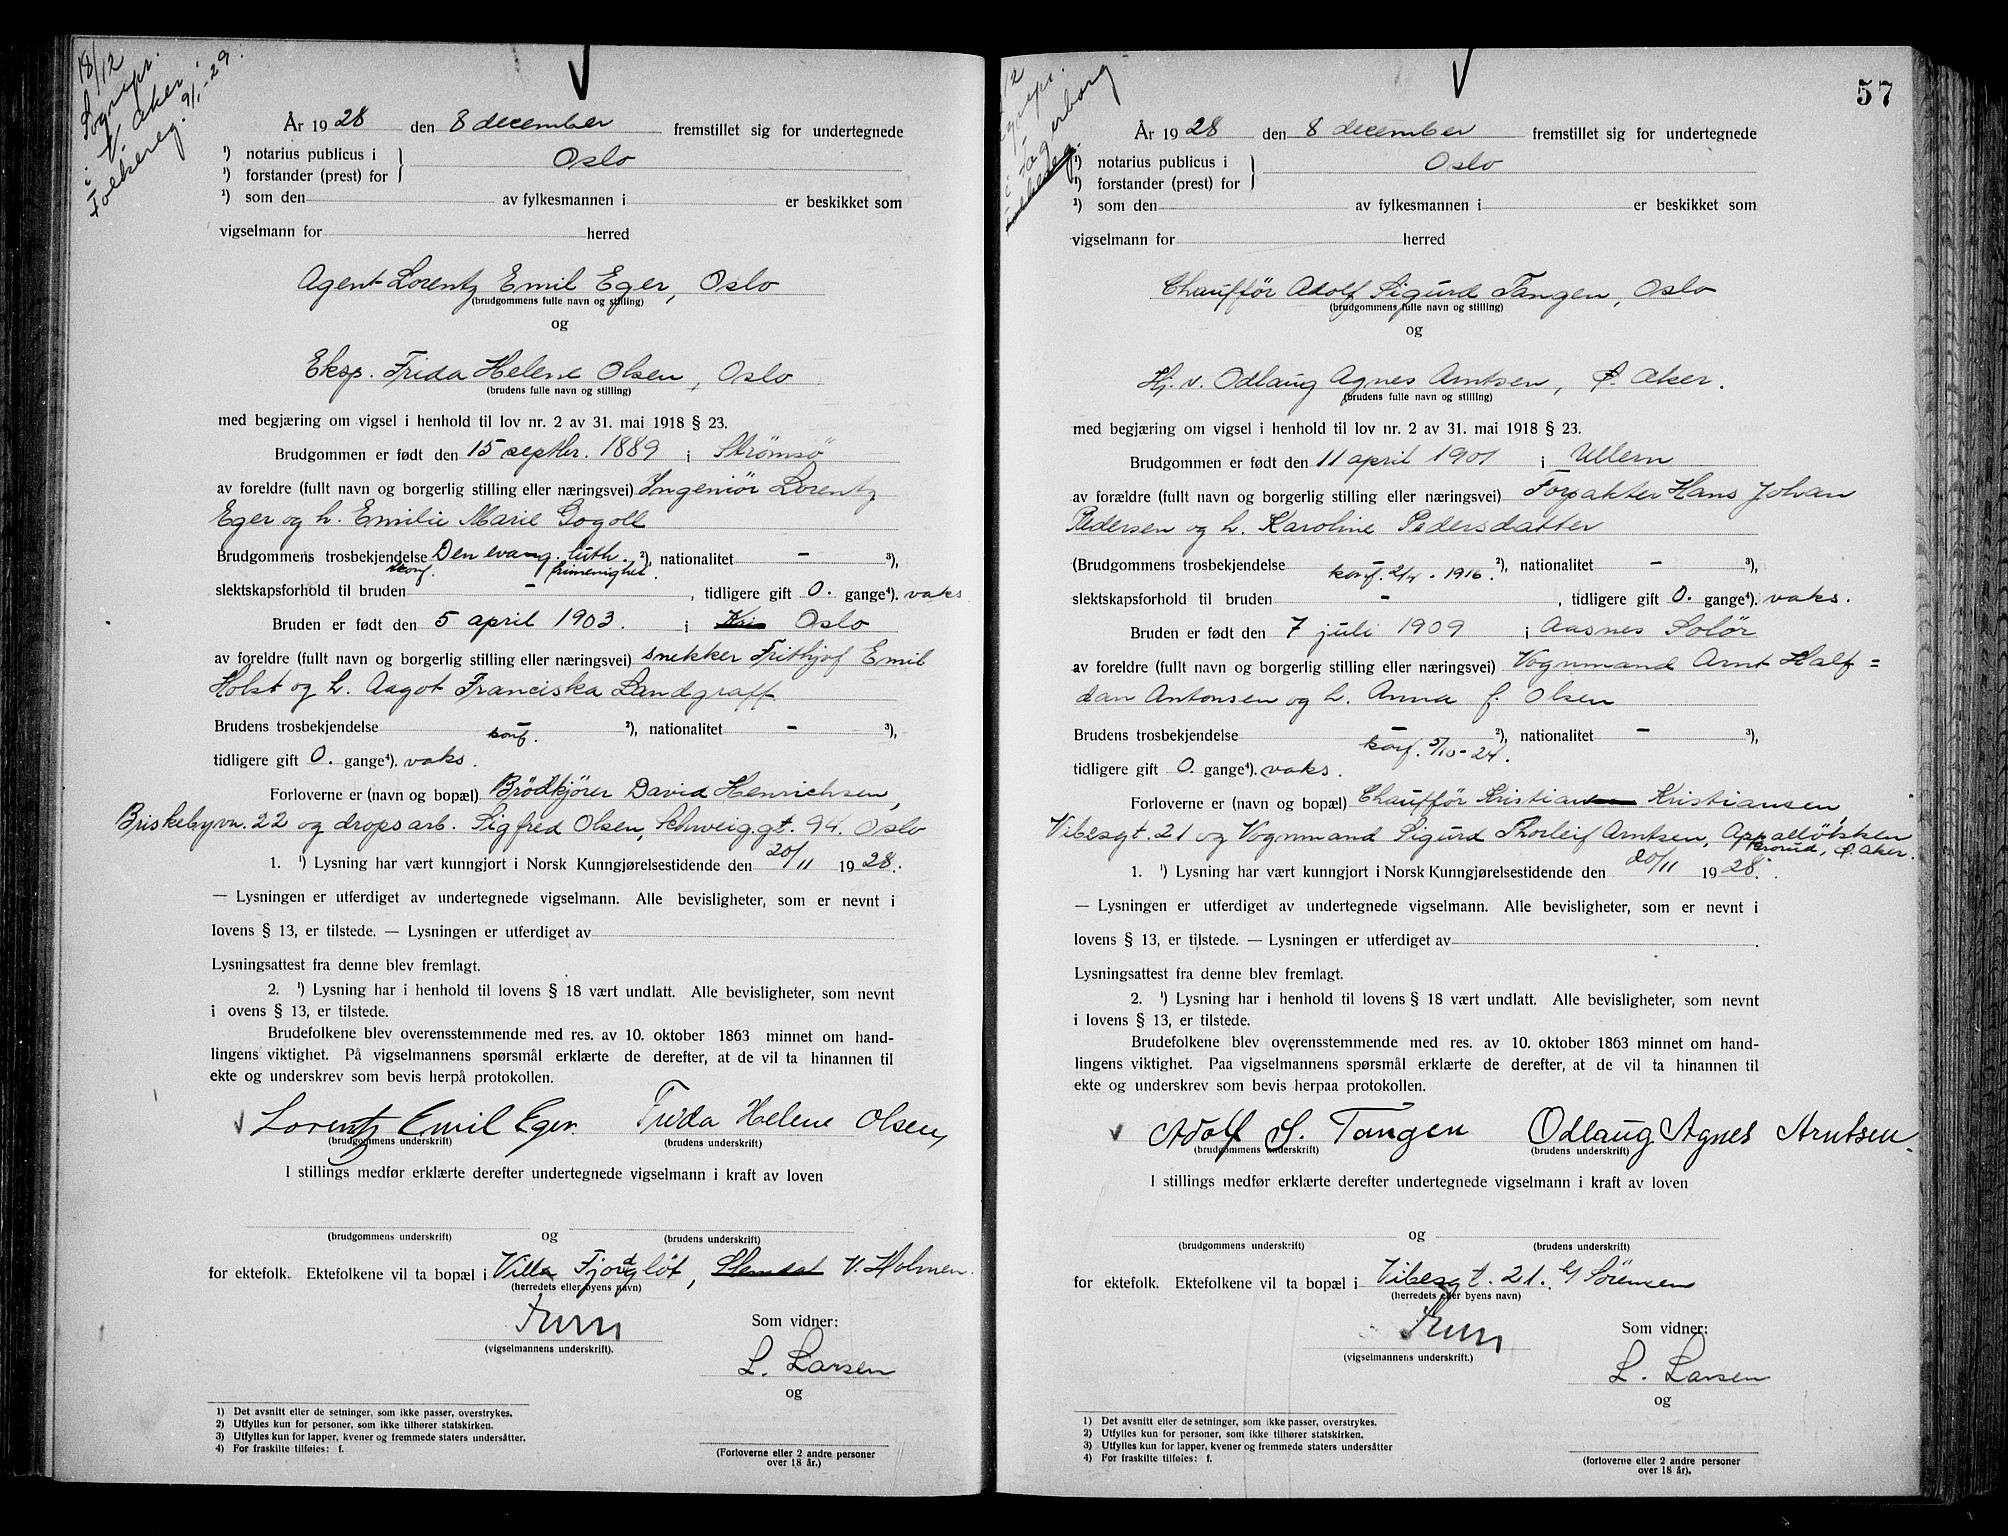 18/12
Sognepr.
i V. Aker.
Folkereg. 9/1-29.
År 1928 den 8 december fremstillet sig for undertegnede
¹) notarius publicus i }
¹) forstander (prest) for } Oslo
¹) som den av fylkesmannen i er beskikket som
vigselmann for herred
Agent Lorentz Emil Eger, Oslo
(brudgommens fulle navn og stilling)
og
Eksp. Frida Helene Olsen, Oslo
(brudens fulle navn og stilling)
med begjæring om vigsel i henhold til lov nr. 2 av 31. mai 1918 § 23.
Brudgommen er født den 15 septbr. 1889 i Strømsö
av foreldre (fullt navn og borgerlig stilling eller næringsvei) Ingeniör Lorentz
Eger og h. Emilie Marie Gogoll
Brudgommens trosbekjendelse Den evang. luth. ²), nationalitet — ³),
konf. frimenighet.
slektskapsforhold til bruden -, tidligere gift 0. gange⁴). vaks
Bruden er født den 5 april 1903. i Kri Oslo
av foreldre (fullt navn og borgerlig stilling eller næringsvei) snekker Frithjof Emil
Holst og h. Aagot Franciska Landgraff
Brudens trosbekjendelse - ²), nationalitet — ³),
konf.
tidligere gift 0. gange⁴). vaks.
Forloverne er (navn og bopæl) Brödkjörer David Henrichsen,
Briskebyvn. 22 og dropsarb. Sigfred Olsen, Schweig.gt. 94. Oslo
1. ¹) Lysning har vært kunngjort i Norsk Kunngjørelsestidende den 20/11 1928.
— Lysningen er utferdiget av undertegnede vigselmann. Alle bevisligheter, som er nevnt i
lovens § 13, er tilstede. — Lysningen er utferdiget av
Lysningsattest fra denne blev fremlagt.
2. ¹) Lysning har i henhold til lovens § 18 vært undlatt. Alle bevisligheter, som nevnt
i ovens § 13, er tilstede.
Brudefolkene blev overensstemmende med res. av 10. oktober 1863 minnet om hand-
lingens viktighet. På vigselmannens spørsmål erklærte de derefter, at de vil ta hinannen til
ekte og underskrev som bevis herpå protokollen.
Lorentz Emil Eger. Frida Helene Olsen,
(brudgommens underskrift) (brudens underskrift)
I stillings medfør erklærte derefter undertegnede vigselmann i kraft av loven
og
(brudgommens underskrift) (brudens underskrift)
for ektefolk. Ektefolkene vil ta bopæl i Villa Fjordgløt, Slemdal V. Holmen.
(herredets eller byens navn)
Som vidner:
(vigselmannens underskrift).
L. Larsen
og
1) Det avsnitt eller de setninger, som ikke passer, overstrykes.
2) Utfylles kun for personer, som ikke tilhører statskirken.
3) Utfylles kun for lapper, kvener og fremmede staters undersåtter.
4) For fraskilte tilføies: f.
(Forloverne eller 2 andre personer
over 18 år.)
57
/12
i Fagerborg
År 1928 den 8 december fremstillet sig for undertegnede
¹) notarius publicus i }
¹) forstander (prest) for } Oslo
¹) som den av fylkesmannen i er beskikket som
vigselmann for herred
Chaufför Adolf Sigurd Tangen, Oslo
(brudgommens fulle navn og stilling)
og
Hj. v. Odlaug Agnes Arntsen, Ø. Aker.
(brudens fulle navn og stilling)
med begjæring om vigsel i henhold til lov nr. 2 av 31. mai 1918 § 23.
Brudgommen er født den 11 april 1901 i Ullern
av forældre (fullt navn og borgerlig stilling eller næringsvei) Forpakter Hans Johan
Pedersen og h. Karoline Pedersdatter
(Brudgommens trosbekjendelse - ²), nationalitet — ³),
konf. 2/4 - 1916.
slektskapsforhold til bruden -, tidligere gift 0. gange⁴). vaks.
Bruden er født den 7 juli 1909 i Aasnes Solör
av foreldre (fullt navn og borgerlig stilling eller næringsvei) Vognmand Arnt Half=
dan Antonsen og h. Anna f. Olsen
Brudens trosbekjendelse - ²), nationalitet — ³),
konf. 5/10-24.
tidligere gift 0. gange⁴). vaks.
Forloverne er (navn og bopæl) Chaufför Kristian Kristiansen,
Vibesgt. 21 og Vognmand Sigurd Thorleif Arntsen, Appallökken
Grorud, Ø. Aker.
1. ¹) Lysning har vært kunngjort i Norsk Kunngjørelsestidende den 20/11 1928.
— Lysningen er utferdiget av undertegnede vigselmann. Alle bevisligheter, som er nevnt i
lovens § 13, er tilstede. — Lysningen er utferdiget av
Lysningsattest fra denne blev fremlagt.
2. ¹) Lysning har i henhold til lovens § 18 vært undlatt. Alle bevisligheter, som nevnt
i lovens § 13, er tilstede.
Brudefolkene blev overensstemmende med res. av 10. oktober 1863 minnet om hand-
lingens viktighet. Paa vigselmannens spørsmål erklærte de derefter, at de vil ta hinannen til
ekte og underskrev som bevis herpaa protokollen.
Adolf S. Tangen Odlaug Agnes Arntsen.
(brudgommens underskrift) (brudens underskrift)
I stillings medfør erklærte derefter undertegnede vigselmann i kraft av loven
og
(brudgommens underskrift) (brudens underskrift)
for ektefolk. Ektefolkene vil ta bopæl i Vibesgt. 21. c/o Sörensen
(herredets eller byens navn)
Som vidner:
(vigselmannens underskrift.)
L. Larsen
og
1) Det avsnitt eller de setninger, som ikke passer, overstrykes.
2) Utfylles kun for personer, som ikke tilhører statskirken.
3) Utfylles kun for lapper, kvener og fremmede staters undersåtter
4) For fraskilte tilføies: f.
(forloverne eller 2 andre personer
over 18 år).